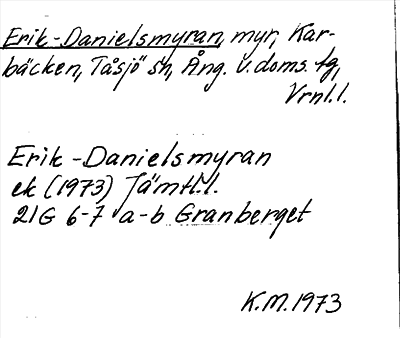 Erik-Danielsmyran, myr, Kar-
bäcken, Tåsjö sn, Ång. v. doms. tg,
Vrnl.l.
Erik-Danielsmyran
ek (1973) Jämtl.l.
21G 6-7 a-b Granberget
K.M. 1973